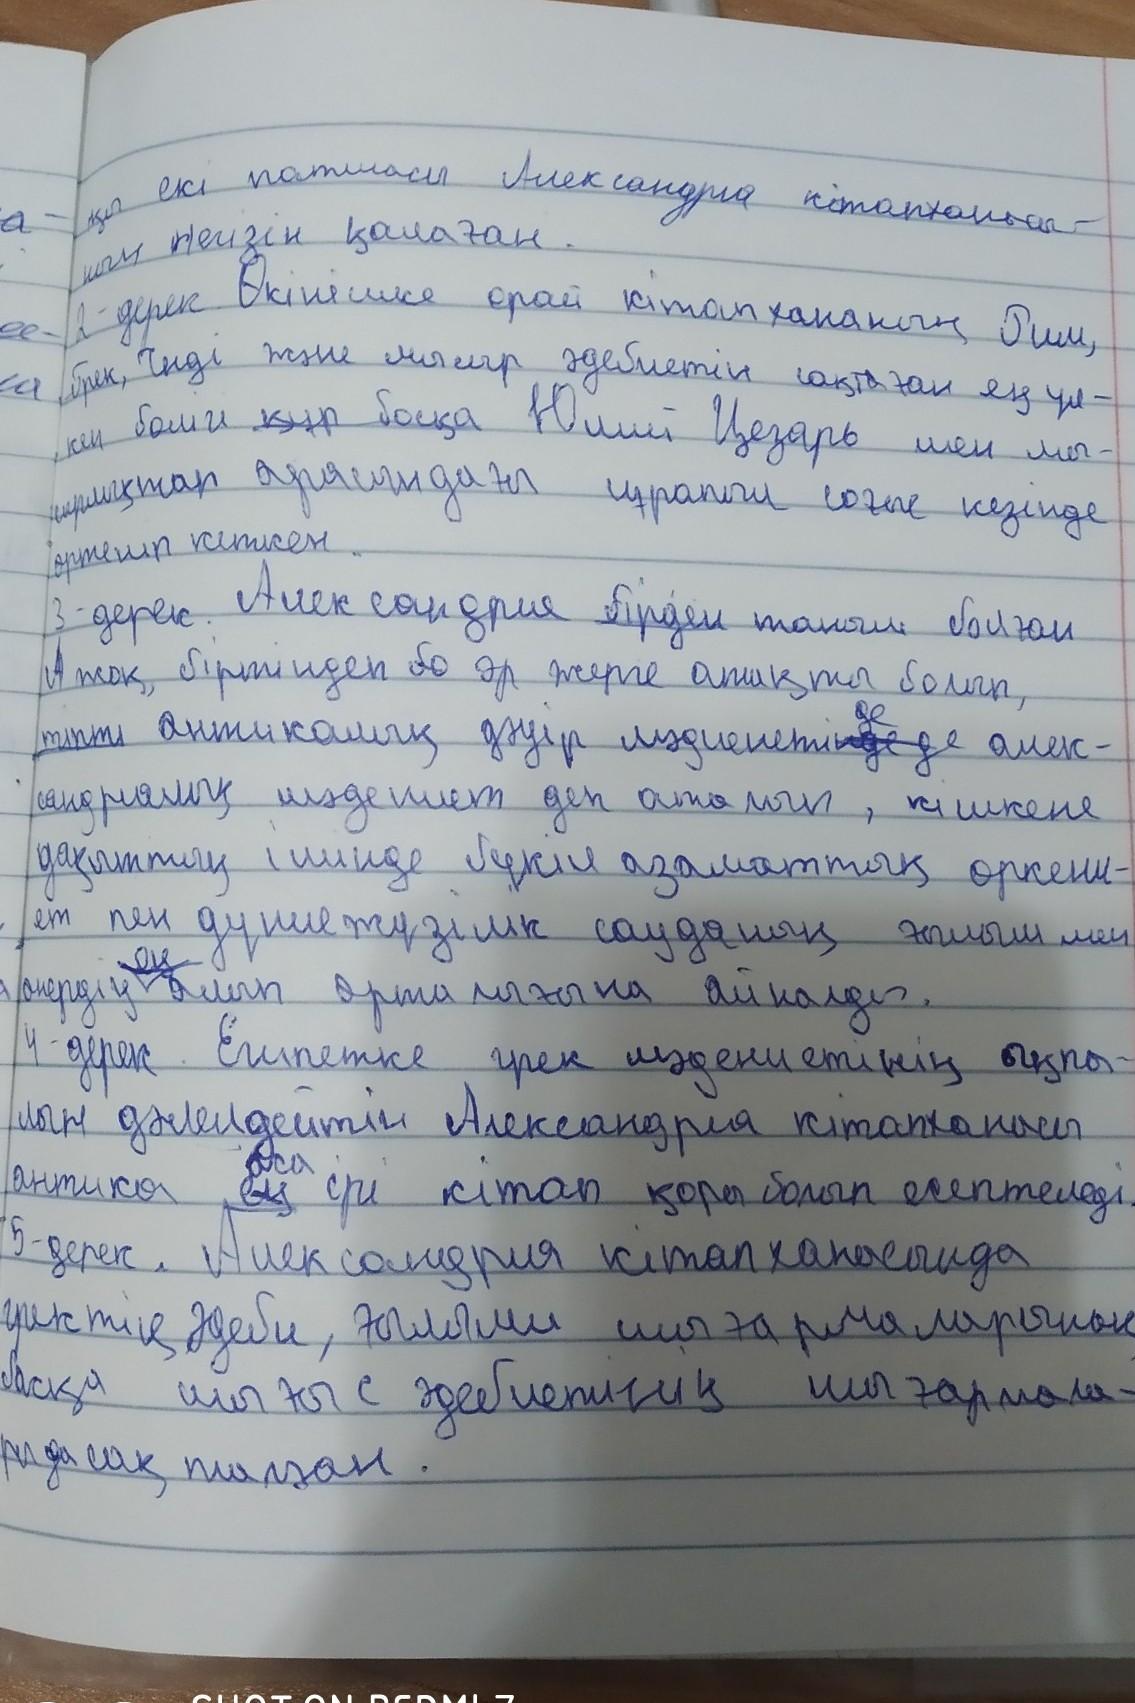 қы екі патшасы Александрия кітапханасы-
ның негізін қалаған.
2-дерек Өкінішке орай кітапхананың Рим,
грек, Үнді және мысыр әдебиетін сақтаған ең үл-
кен бөлігі құр босқа Юлий Цезарь мен мы-
сырлықтар арасындағы ұрапыл соғыс кезінде
өртеніп кеткен.
3-дерек. Александрия бірден танымал болған
жоқ, біртіндеп бо әр жерге атақты болып,
тіпті антикалық дәуір мәдениетінде де алек-
сандриялық мәдениет деп аталып, кішкене
уақыттың ішінде бүкіл азаматтық өркени-
ет пен дүниежүзілік сауданың ғылым мен
өнердің ең алып орталығына айналды.
4-дерек. Египетке грек мәдениетінің ықпа-
лын дәлелдейтін Александрия кітапханасы
антика ең аса ірі кітап қоры болып есептеледі.
5-дерек. Александрия кітапханасында
гректің әдеби, ғылыми шығармаларынан
басқа шығыс әдебиетінің шығармала-
ры да сақталған.
SHOT ON REDMI 7